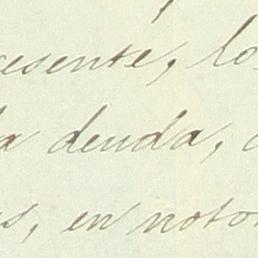 resente, lo
la deuda,
s, en noto